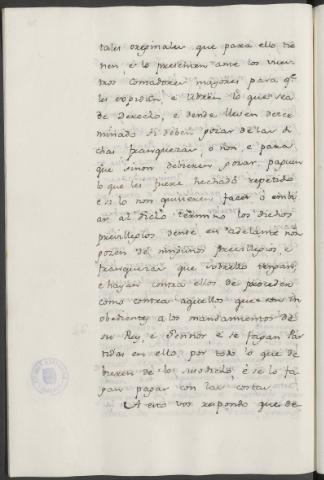 tales originales que para ello tie
nen, é lo presenten ante los vues
tros contadores mayores para qe.
les expidan, e libren lo que sea
de derecho, e dende lleven deter
minado si deben gozar de las di
chas franquezas, o non, e para
que sinon debieren gozar, paguen
lo que les fuere hechado repetido
é si lo non quisieren facer ó embi
ar al dicho termino los dichos
previllegios dende en adelante nos
gozen de ningunos previllegios e
franquezas que sobrello tengan,
e hayan contra ellos de proceder
como contra aquellos que son in
obedientes a los mandamientos de
su Rey, e Sennor é se fagan Par
tidas en ello, por todo lo que de
bieren de lo susodicho, é se lo fa
gan pagar con las costas
A esto vos respondo que de